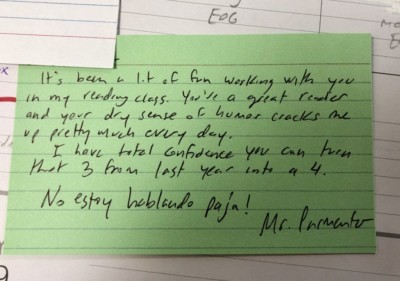 EOG
It's been a lot of fun working with you
in my reading class. You're a great reader
and your dry sense of humor cracks me
up pretty much every day.
I have total confidence you can turn
that 3 from last year into a 4.
No estoy hablando paja!
Mr. Parmenter